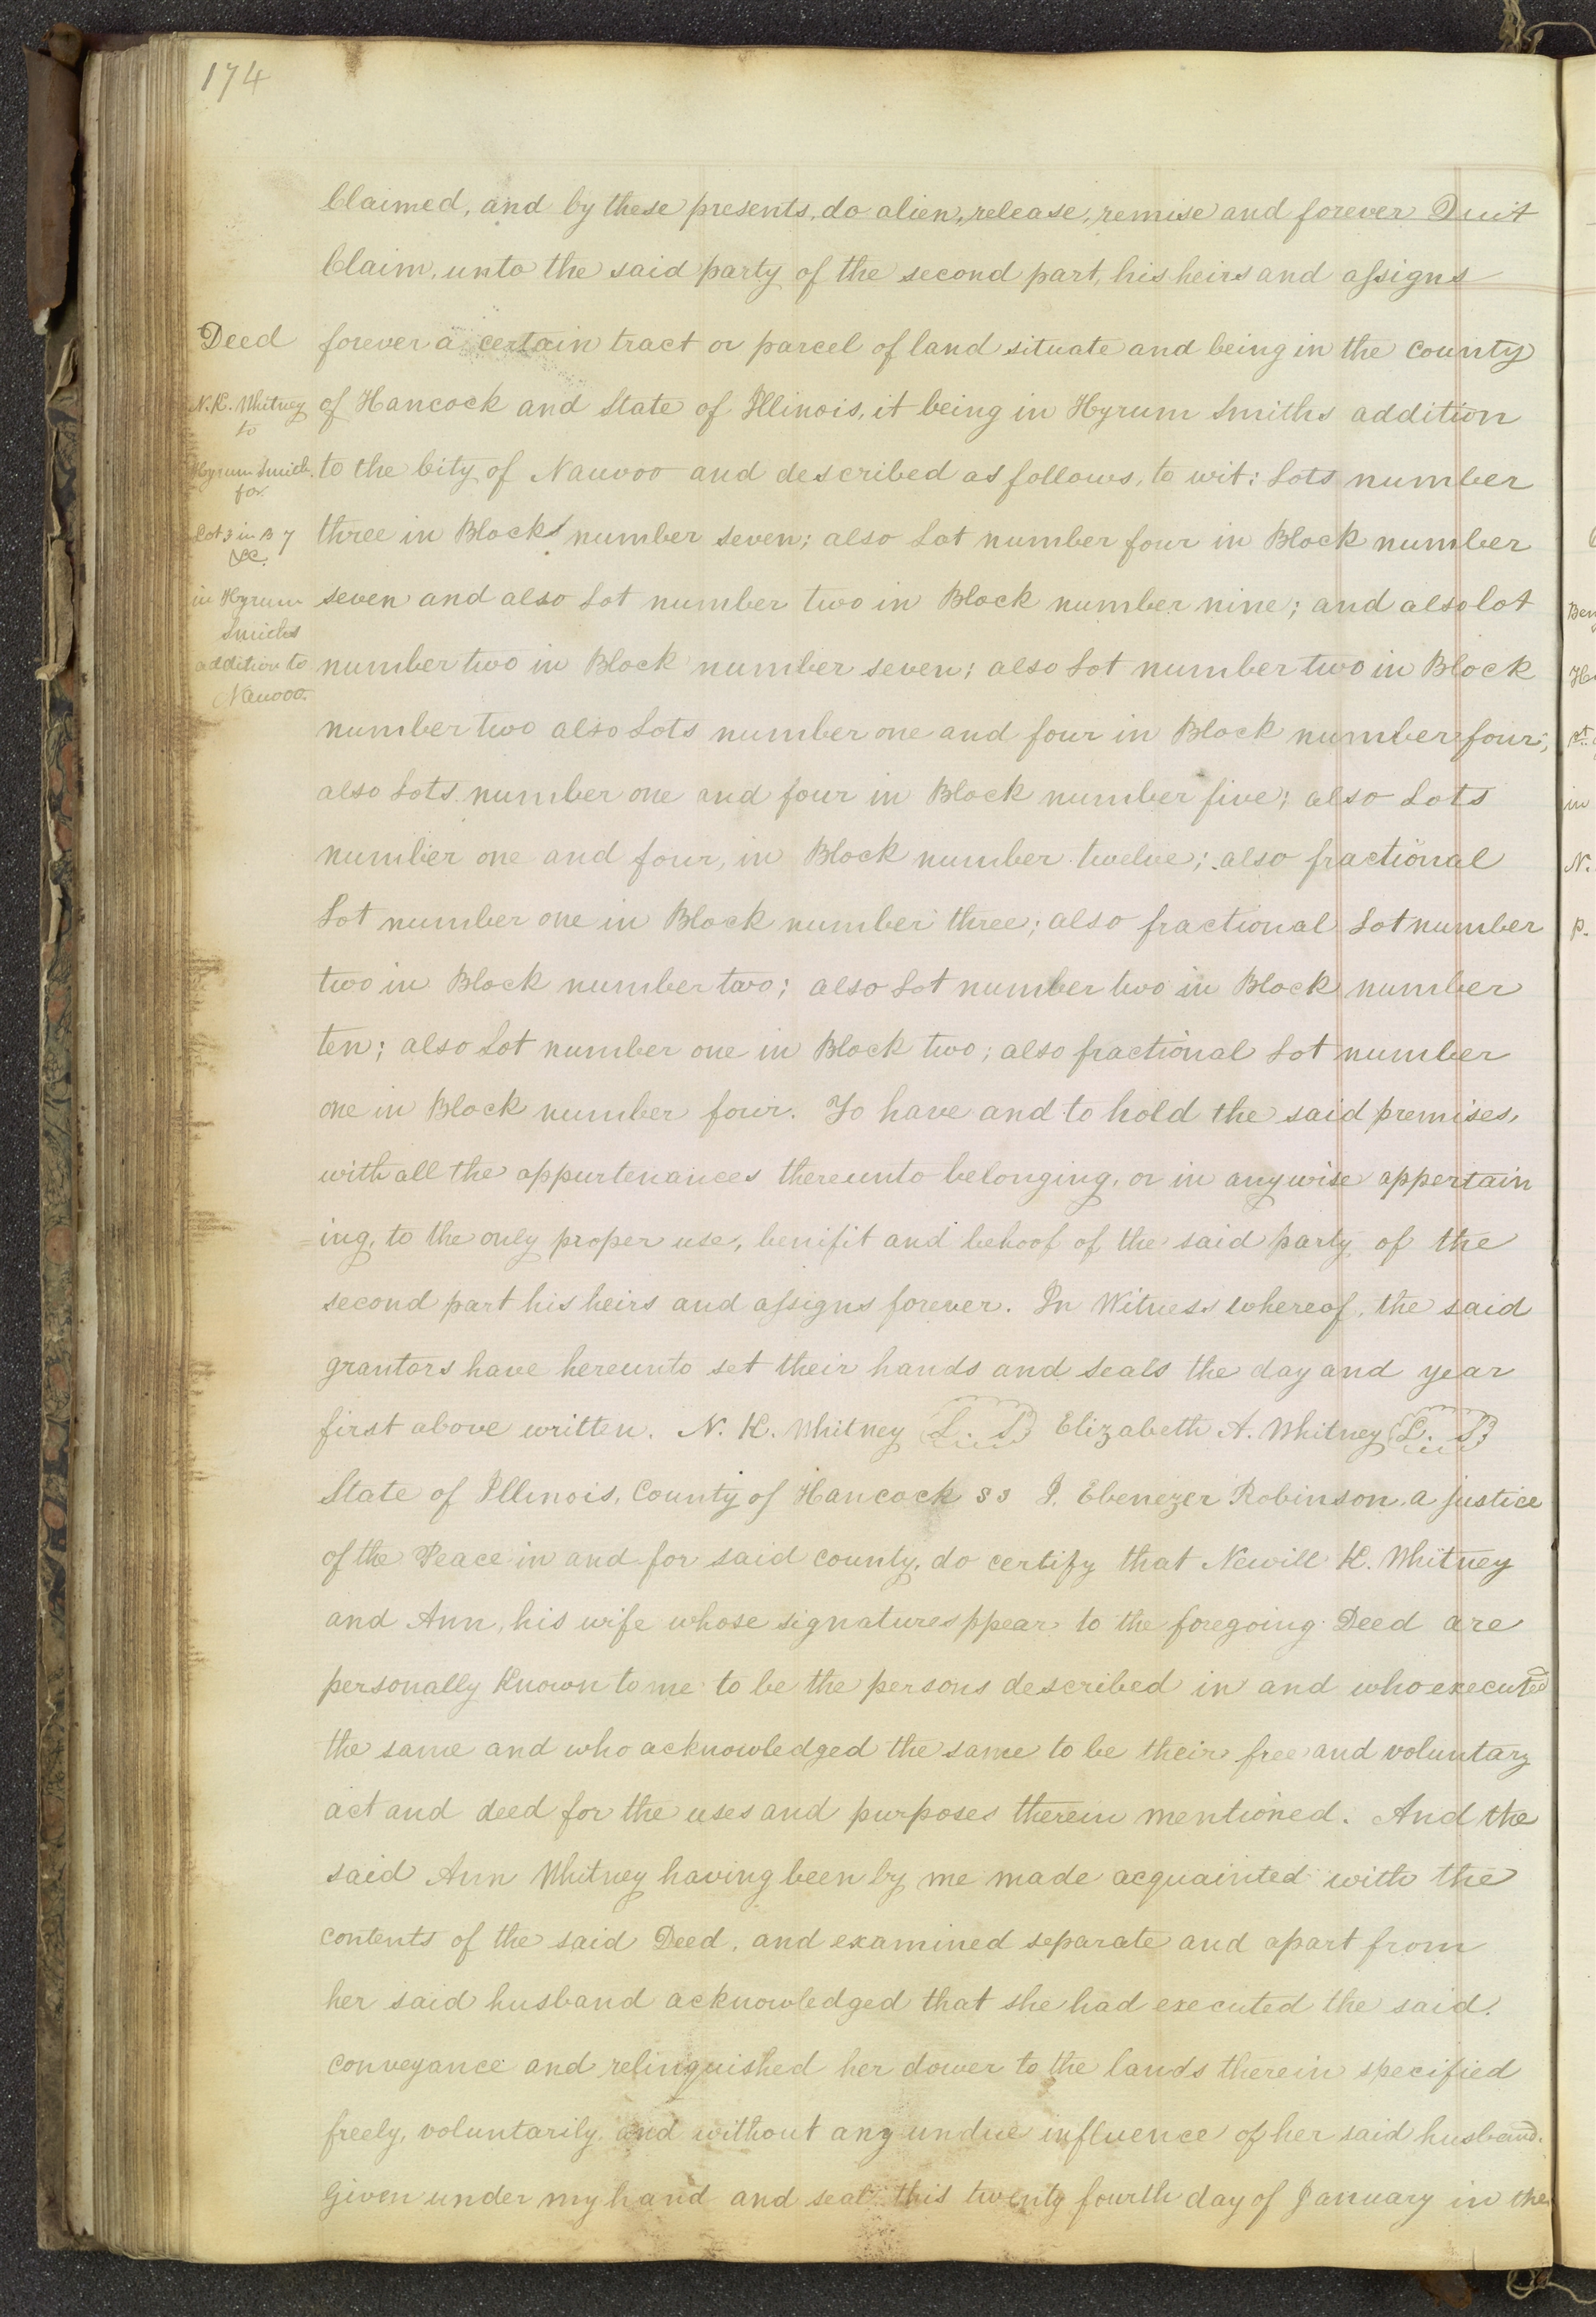 174
Claimed, and by these presents, do alien, release, remise and forever Quit
Claim, unto the said party of the second part, his heirs and assigns
Deed
forever a certain tract or parcel of land situate and being in the county
N. K. Whitney
of Hancock and State of Illinois, it being in Hyrum Smiths addition
to
Hyrum Smith.
to the City of Nauvoo and described as follows, to wit: Lots number
for.
Lot 3 in B 7
three in Block number seven; also Lot number four in Block number
&c.
in Hyrum
seven and also Lot number two in Block number nine; and also lot
Smiths
addition to
number two in Block number seven; also Lot number two in Block
Nauvoo.
number two also Lots number one and four in Block number four;
also Lots number one and four in Block number five; also Lots
number one and four, in Block number twelve; also fractional
Lot number one in Block number three; also fractional Lot number
two in Block number two; also Lot number two in Block number
ten; also Lot number one in Block two; also fractional Lot number
one in Block number four. To have and to hold the said premises,
with all the appurtenances thereunto belonging, or in anywise appertain
=ing, to the only proper use, benifit and behoof of the said party of the
second part his heirs and assigns forever. In Witness whereof, the said
grantors have hereunto set their hands and seals the day and year
first above written. N. K. Whitney L. S. Elizabeth A. Whitney L. S.
State of Illinois, County of Hancock SS I, Ebenezer Robinson, a justice
of the Peace in and for said county, do certify that Newill K. Whitney
and Ann, his wife whose signatures ppear to the foregoing Deed are
personally Known to me to be the persons described in and who executed
the same and who acknowledged the same to be their free and voluntary
act and deed for the uses and purposes therein mentioned. And the
said Ann Whitney having been by me made acquainted with the
contents of the said Deed, and examined separate and apart from
her said husband acknowledged that she had executed the said.
conveyance and relinquished her dower to the lands therein specified
freely, voluntarily and without any undue influence of her said husband.
Given under my hand and seal this twenty fourth day of January in the
Ben
in
N.
P.